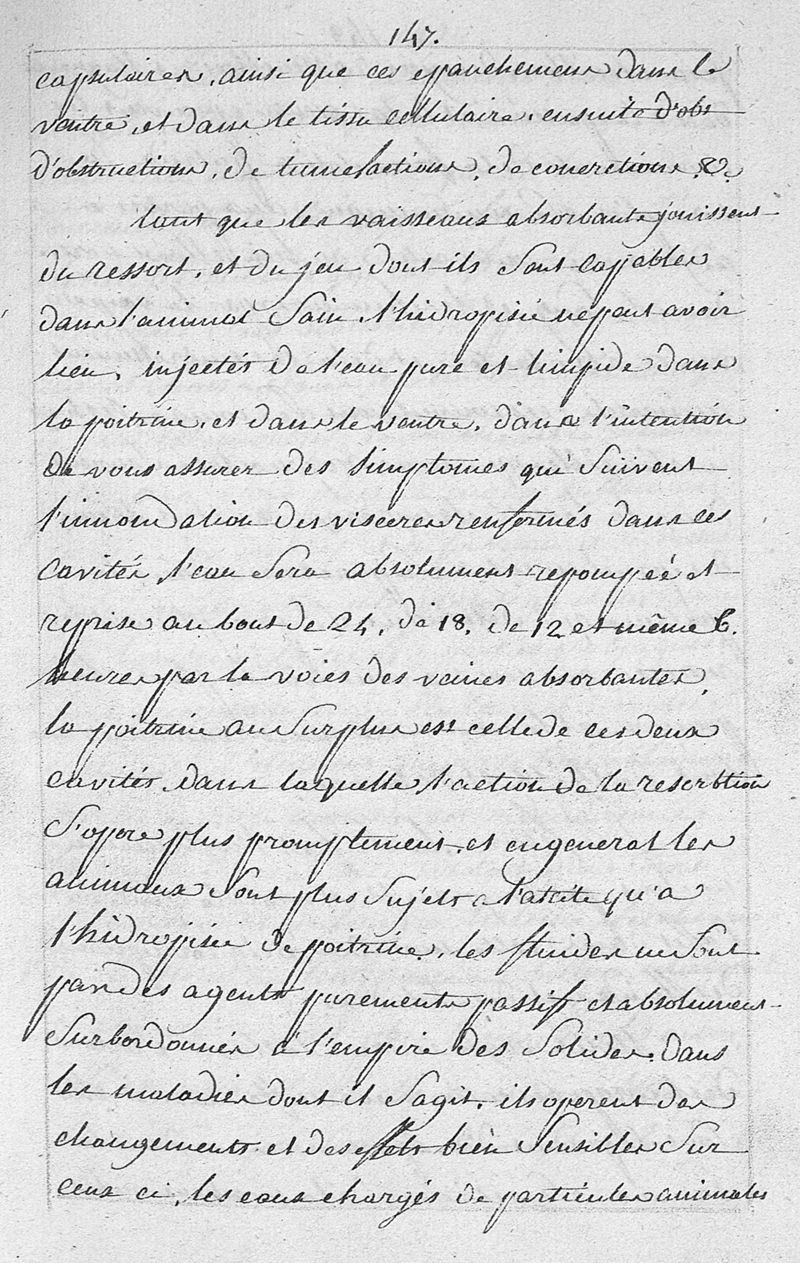 147.
capsulaires, ainsi que ces epanchemens dans le
ventre, et dans le tissu cellulaire, ensuite d'obs
d'obstructions, de tumefactions, de concretions &.
tant que les vaisseaux absorbants jouissent
du ressort, et du jeu dont ils sont capables
dans l'animal sain, l'hidropisie ne peut avoir
lieu, injectés de l'eau pure et limpide dans
la poitrine, et dans le ventre, dans l'intention
de vous assurer des simptomes qui suivent
l'innondation des visceres renfermés dans ces
cavités, l'eau sera absolument repompée et
reprise au bout de 24, de 18, de 12 et même 6.
heures par la voies des veines absorbantes,
la poitrine au surplus est celle de ces deux
cavités, dans laquelle l'action de la resorbtion
s'opere plus promptement, et en general les
animaux sont plus sujets a l'ascite qu'a
l'hidropisie de poitrine, les fluides ne sont
pas des agents purements passifs et absolument
surbordonnés à l'empire des solides, dans
les maladies dont il sagit, ils operent des
changements et des effets bien sensibles sur
ceux ci, les eaux chargés de particules animales